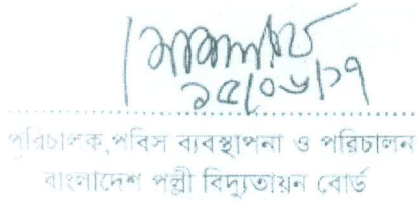 ১৫/০৬/১৭
পরিচালক,পবিস ব্যবস্থাপনা ও পরিচালন
বাংলাদেশ পল্লী বিদ্যুতায়ন বোর্ড